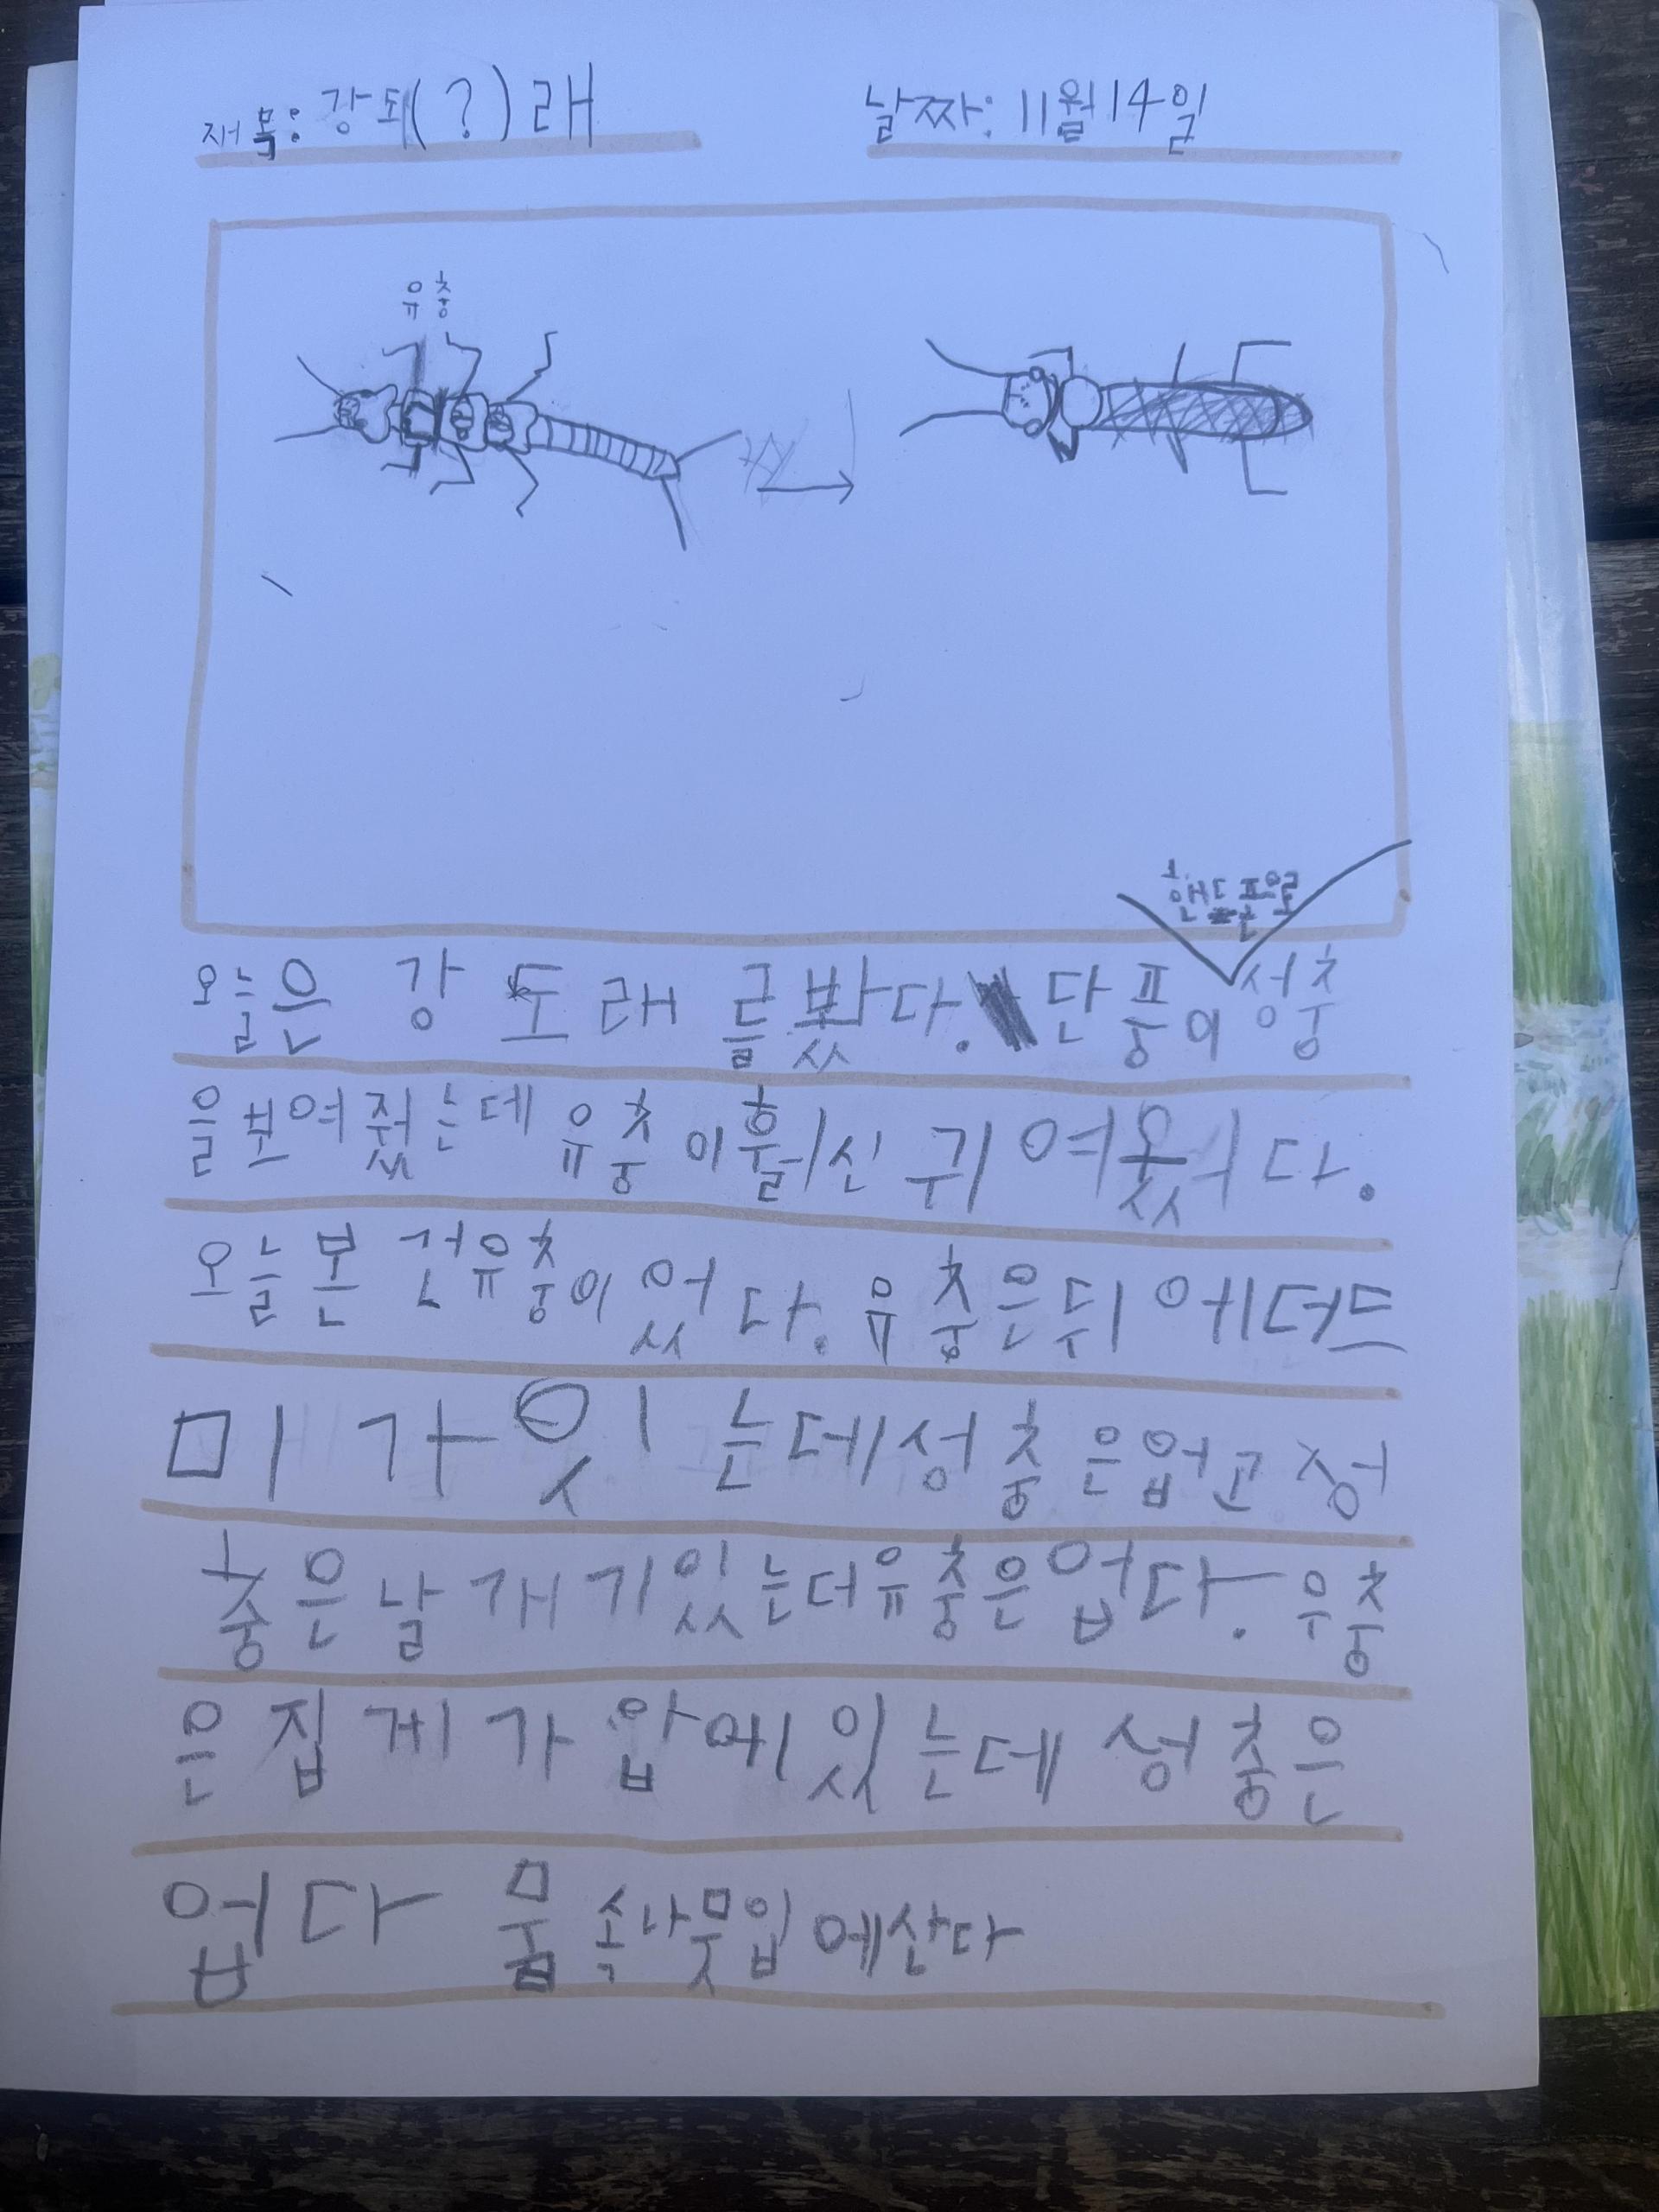 재목: 강되(?)래
날짜: 11월 14일
유충
핸드폰으로
오늘은 강도래를봤다. 단풍이 성충
을보여줬는데 유충이훨신 귀여웠다.
오늘본 건유충이었다. 유충은뒤에더드
미가잇는데성충은업고 성
충은날개기있는더유충은업다. 우충
은집게가압에있는데 성충은
업다 뭄속나뭇입에산다